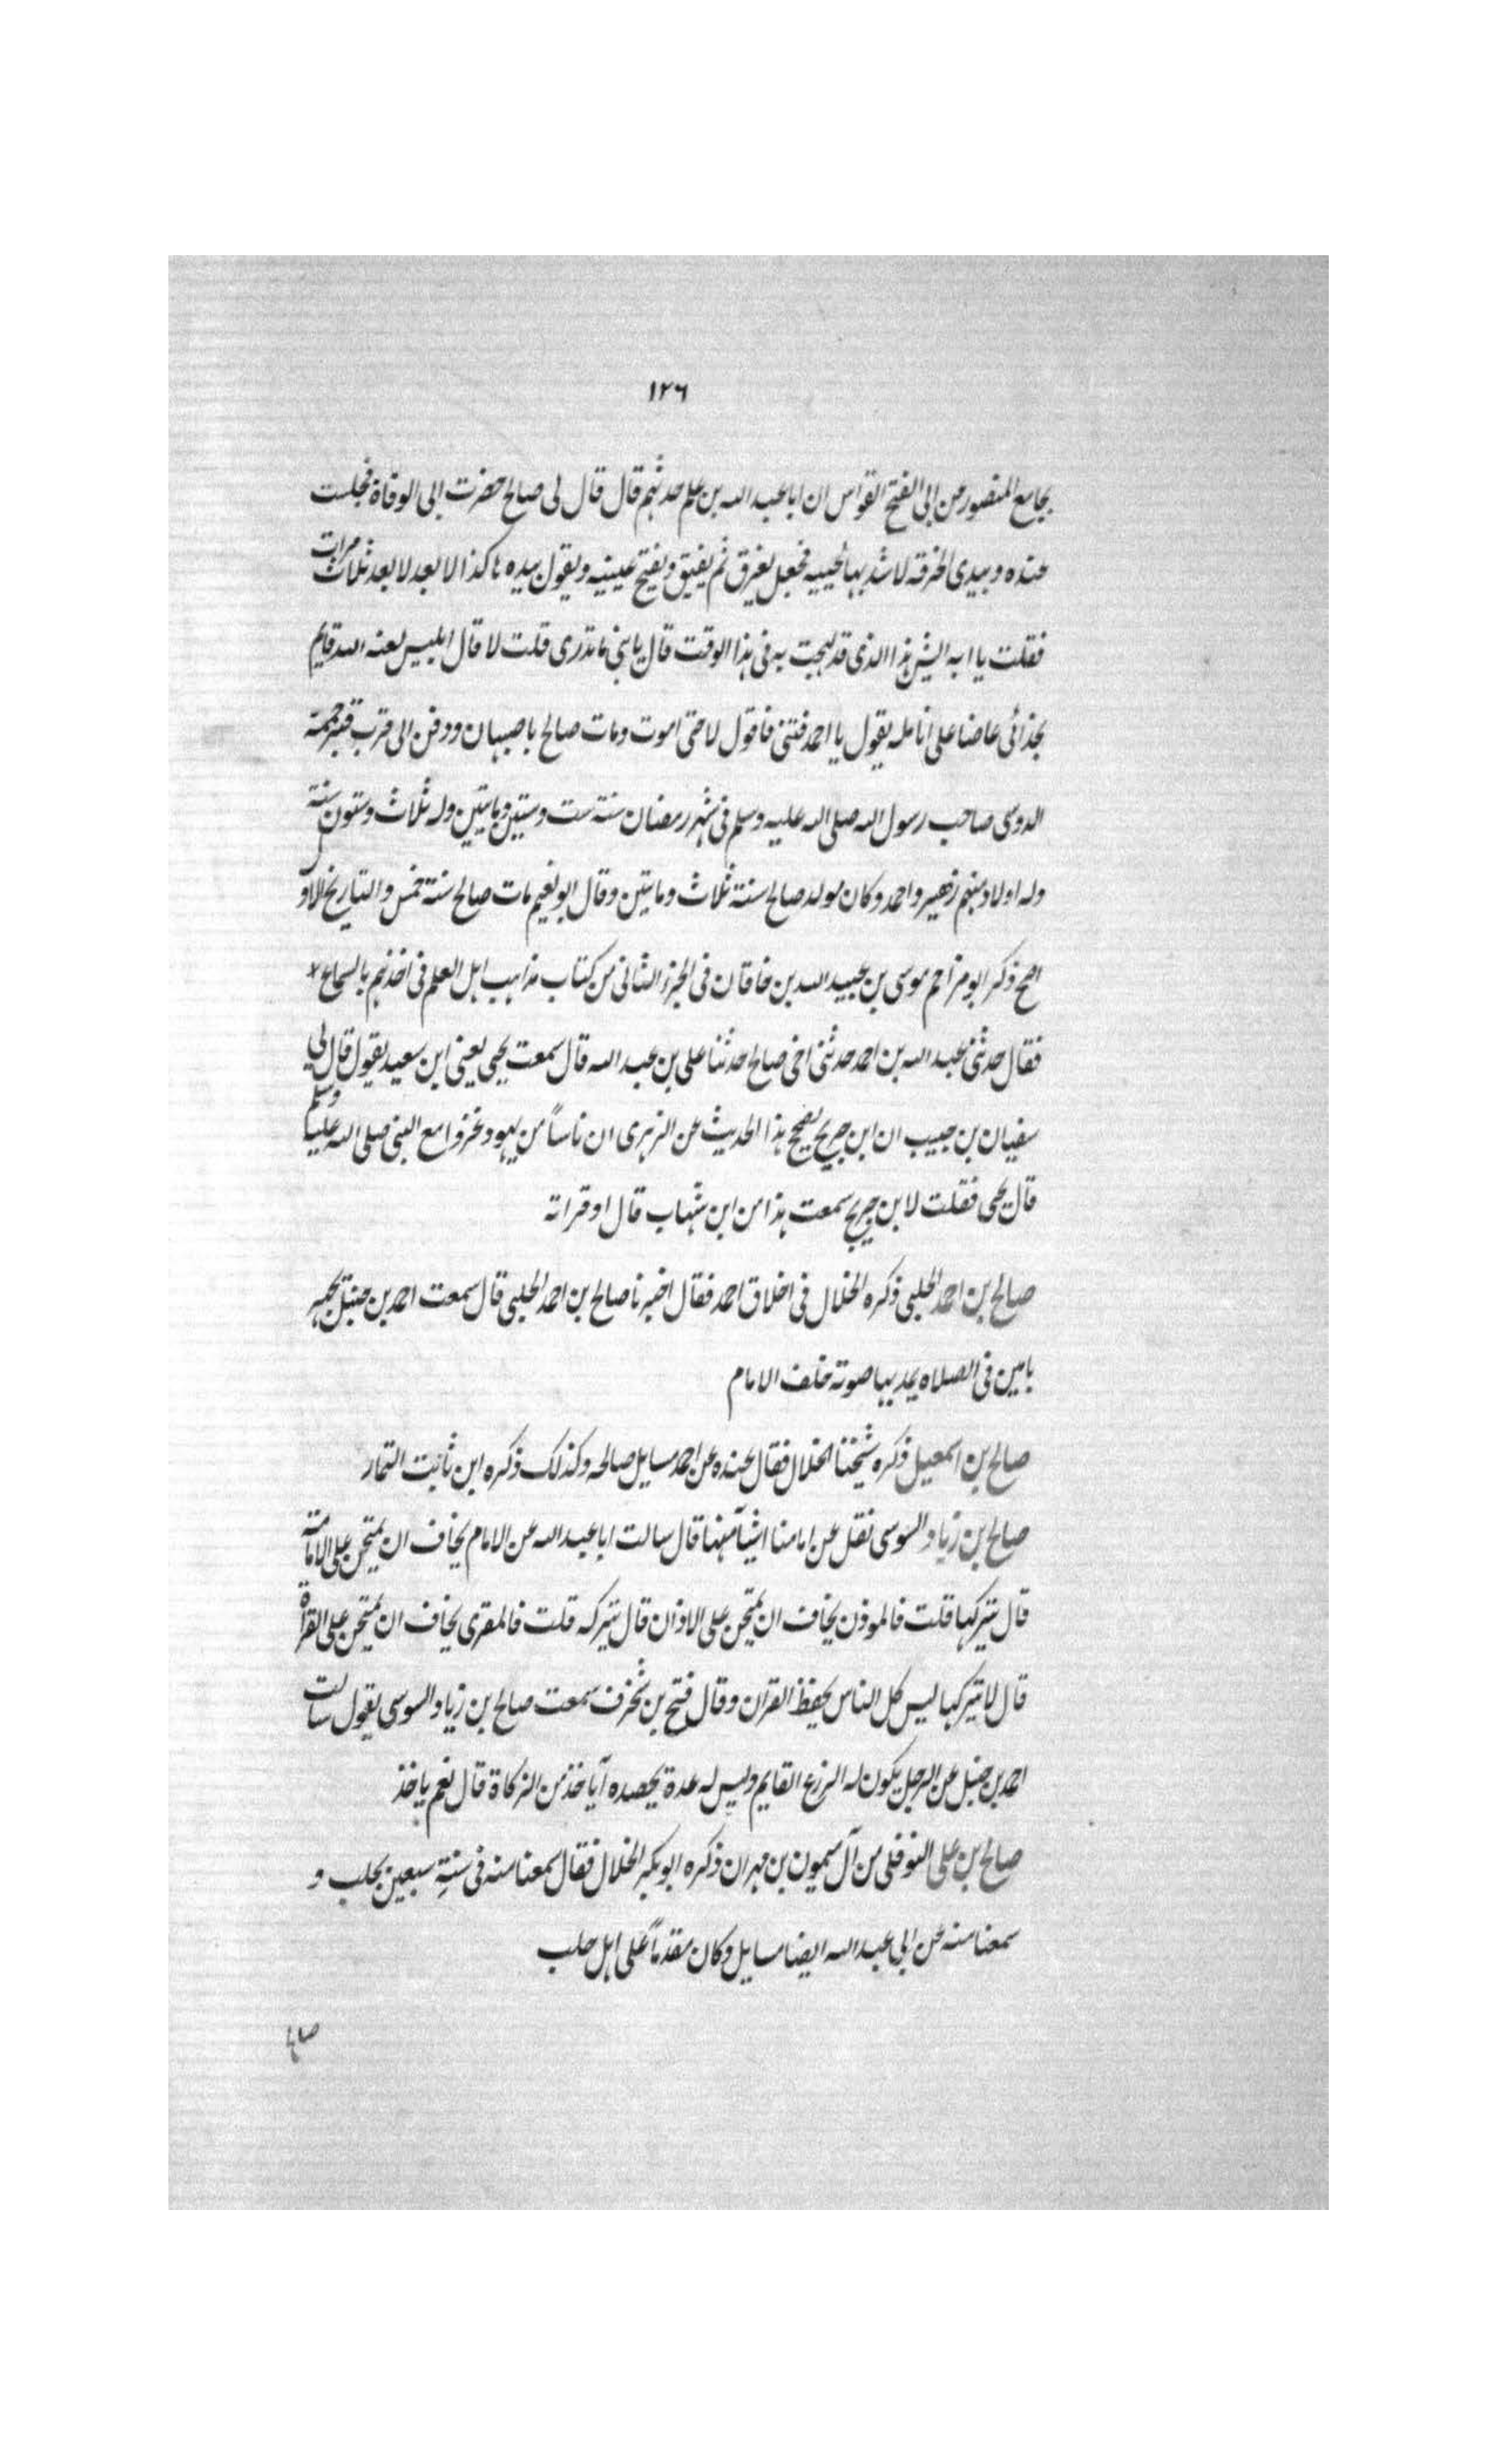 ١٢٦
بجامع المنصور من ابى الفتح القواس ان ابا عبد الله بن علم حدثهم قال قال لى صالح حضرت ابى الوفاة فجلست
عنده وبيدى الخرقه لاشد بها لحييه فجعل يغرق ثم يفيق ويفتح عينيه ويقول بيده هاكذا لا بعد لا بعد ثلاث مرات
فقلت يا ابه ايش هذا الذى قد لهجت به فى هذا الوقت قال يا بنى ما تدرى قلت لا قال ابليس لعنه الله قايم
بحذائى عاضا على انامله يقول يا احمد فتنى فاقول لا حتى اموت ومات صالح باصبهان ودفن الى قرب قبر حممة
الدوسى صاحب رسول الله صلى الله عليه وسلم فى شهر رمضان سنة ست وستين ومايتين وله ثلاث وستون سنة
وله اولاد منهم زهير واحمد وكان مولد صالح سنة ثلاث ومايتين وقال ابو نعيم مات صالح سنة خمس والتاريخ الاول
اصح ذكر ابو مزاحم موسى بن عبيد الله بن خاقان فى الجزء الثانى من كتاب مذاهب اهل العلم فى اخذهم بالسماع
فقال حدثنى عبد الله بن احمد حدثنى اخى صالح حدثنا على بن عبد الله قال سمعت يحيى يعنى ابن سعيد يقول قال لى
سفيان بن حبيب ان ابن جريج يصحح هذا الحديث عن الزهرى ان ناساً من يهود غزوا مع النبى صلى الله عليه وسلم
قال يحيى فقلت لابن جريج سمعت هذا من ابن شهاب قال او قراته
صالح بن احمد الحلبى ذكره الخلال فى اخلاق احمد فقال اخبرنا صالح بن احمد الحلبى قال سمعت احمد بن حنبل يجهر
بامين فى الصلاه يمد بها صوته خلف الامام
صالح بن اسمعيل ذكره شيخنا الخلال فقال عنده عن احمد مسايل صالحه وكذلك ذكره ابن ثابت التمار
صالح بن زياد السوسى نقل عن امامنا اشيآ منها قال سالت ابا عبد الله عن الامام يخاف ان يمتحن على الامامة
قال يتركها قلت فالموذن يخاف ان يمتحن على الاذان قال يتركه قلت فالمقرى يخاف ان يمتحن على القراة
قال لا يتركها ليس كل الناس يحفظ القران وقال فتح بن شخرف سمعت صالح بن زياد السوسى يقول سالت
احمد بن حنبل عن الرجل يكون له الزرع القايم وليس له عدة يحصده آياخذ من الزكاة قال نعم ياخذ
صالح بن على النوفلى من آل ميمون بن مهران ذكره ابو بكر الخلال فقال سمعنا منه فى سنة سبعين بحلب و
سمعنا منه عن ابى عبد الله ايضا مسايل وكان مقدماً على اهل حلب